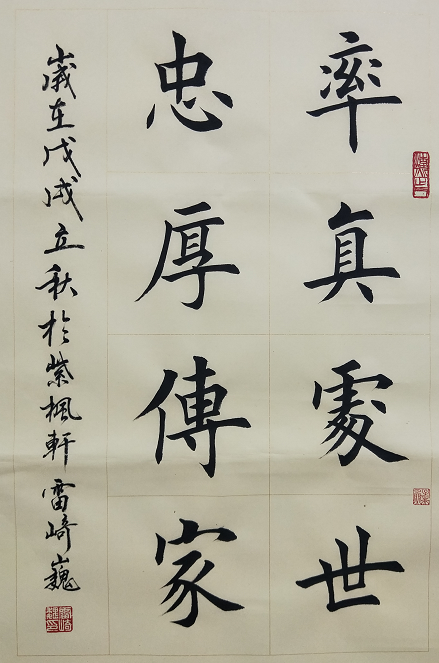 率真處世
忠厚傳家
歲在戊戌立秋於紫楓軒雷崎巍